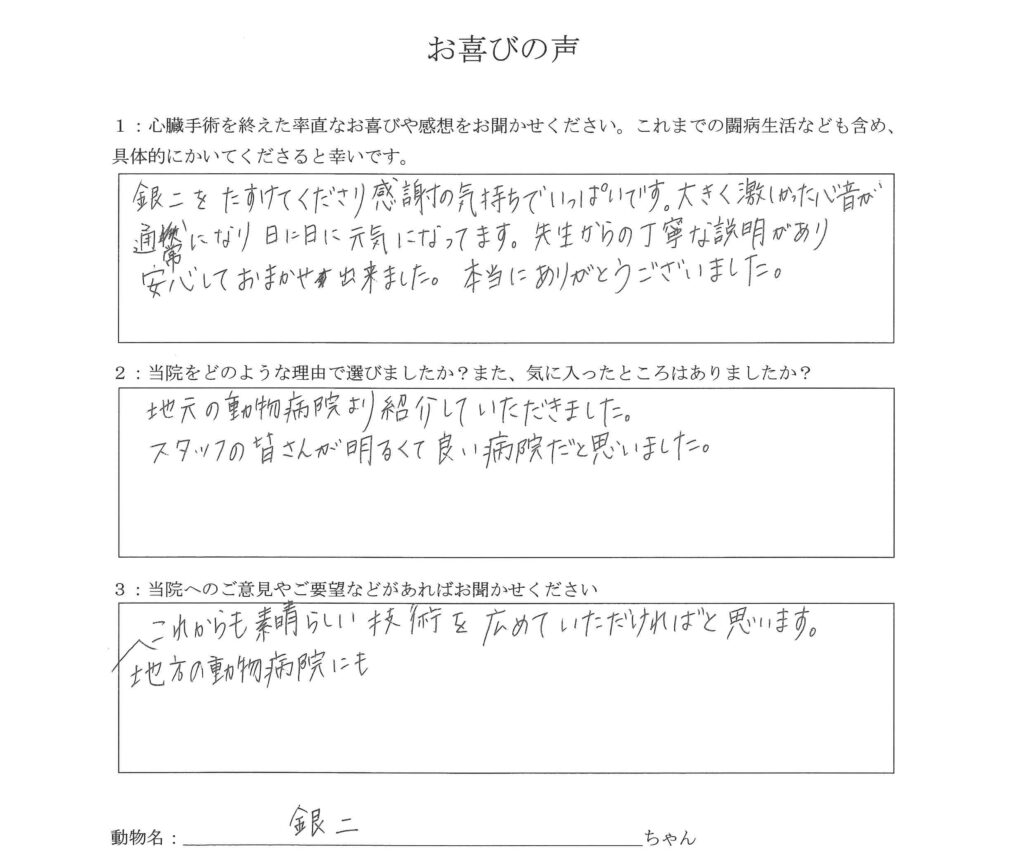 お喜びの声
1:心臓手術を終えた率直なお喜びや感想をお聞かせください。これまでの闘病生活なども含め、
具体的にかいてくださると幸いです。
銀二を たすけてくださり感謝の気持ちでいっぱいです。大きく激しかった心音が
通常になり 日に日に元気になってます。先生からの丁寧な説明があり
安心しておまかせ出来ました。本当にありがとうございました。
2:当院をどのような理由で選びましたか?また、気に入ったところはありましたか?
地元の動物病院より紹介していただきました。
スタッフの皆さんが明るくて良い病院だと思いました。
3:当院へのご意見やご要望などがあればお聞かせください
これからも素晴らしい技術を広めていただければと思います。
地方の動物病院にも
動物名:銀二ちゃん